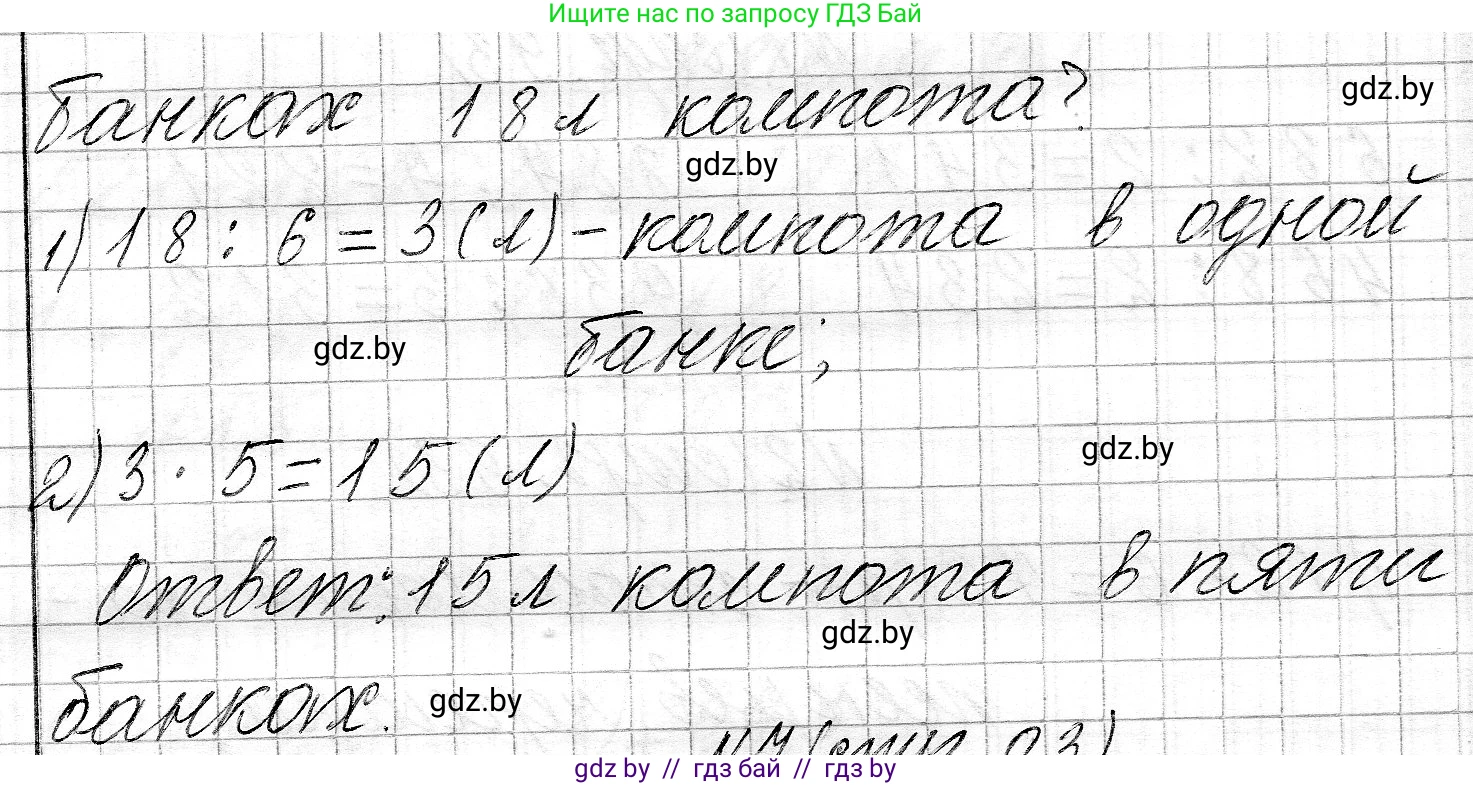 Ищите нас по запросу ГДЗ Бай
банках 18 л компота?
gdz.by
gdz.by
1) 18 : 6 = 3 (л) - компота в одной
банке;
gdz.by
2) 3 · 5 = 15 (л)
gdz.by
Ответ: 15 л компота в пяти
gdz.by
банках.
gdz.by
gdz by // гдз бай // гдз by